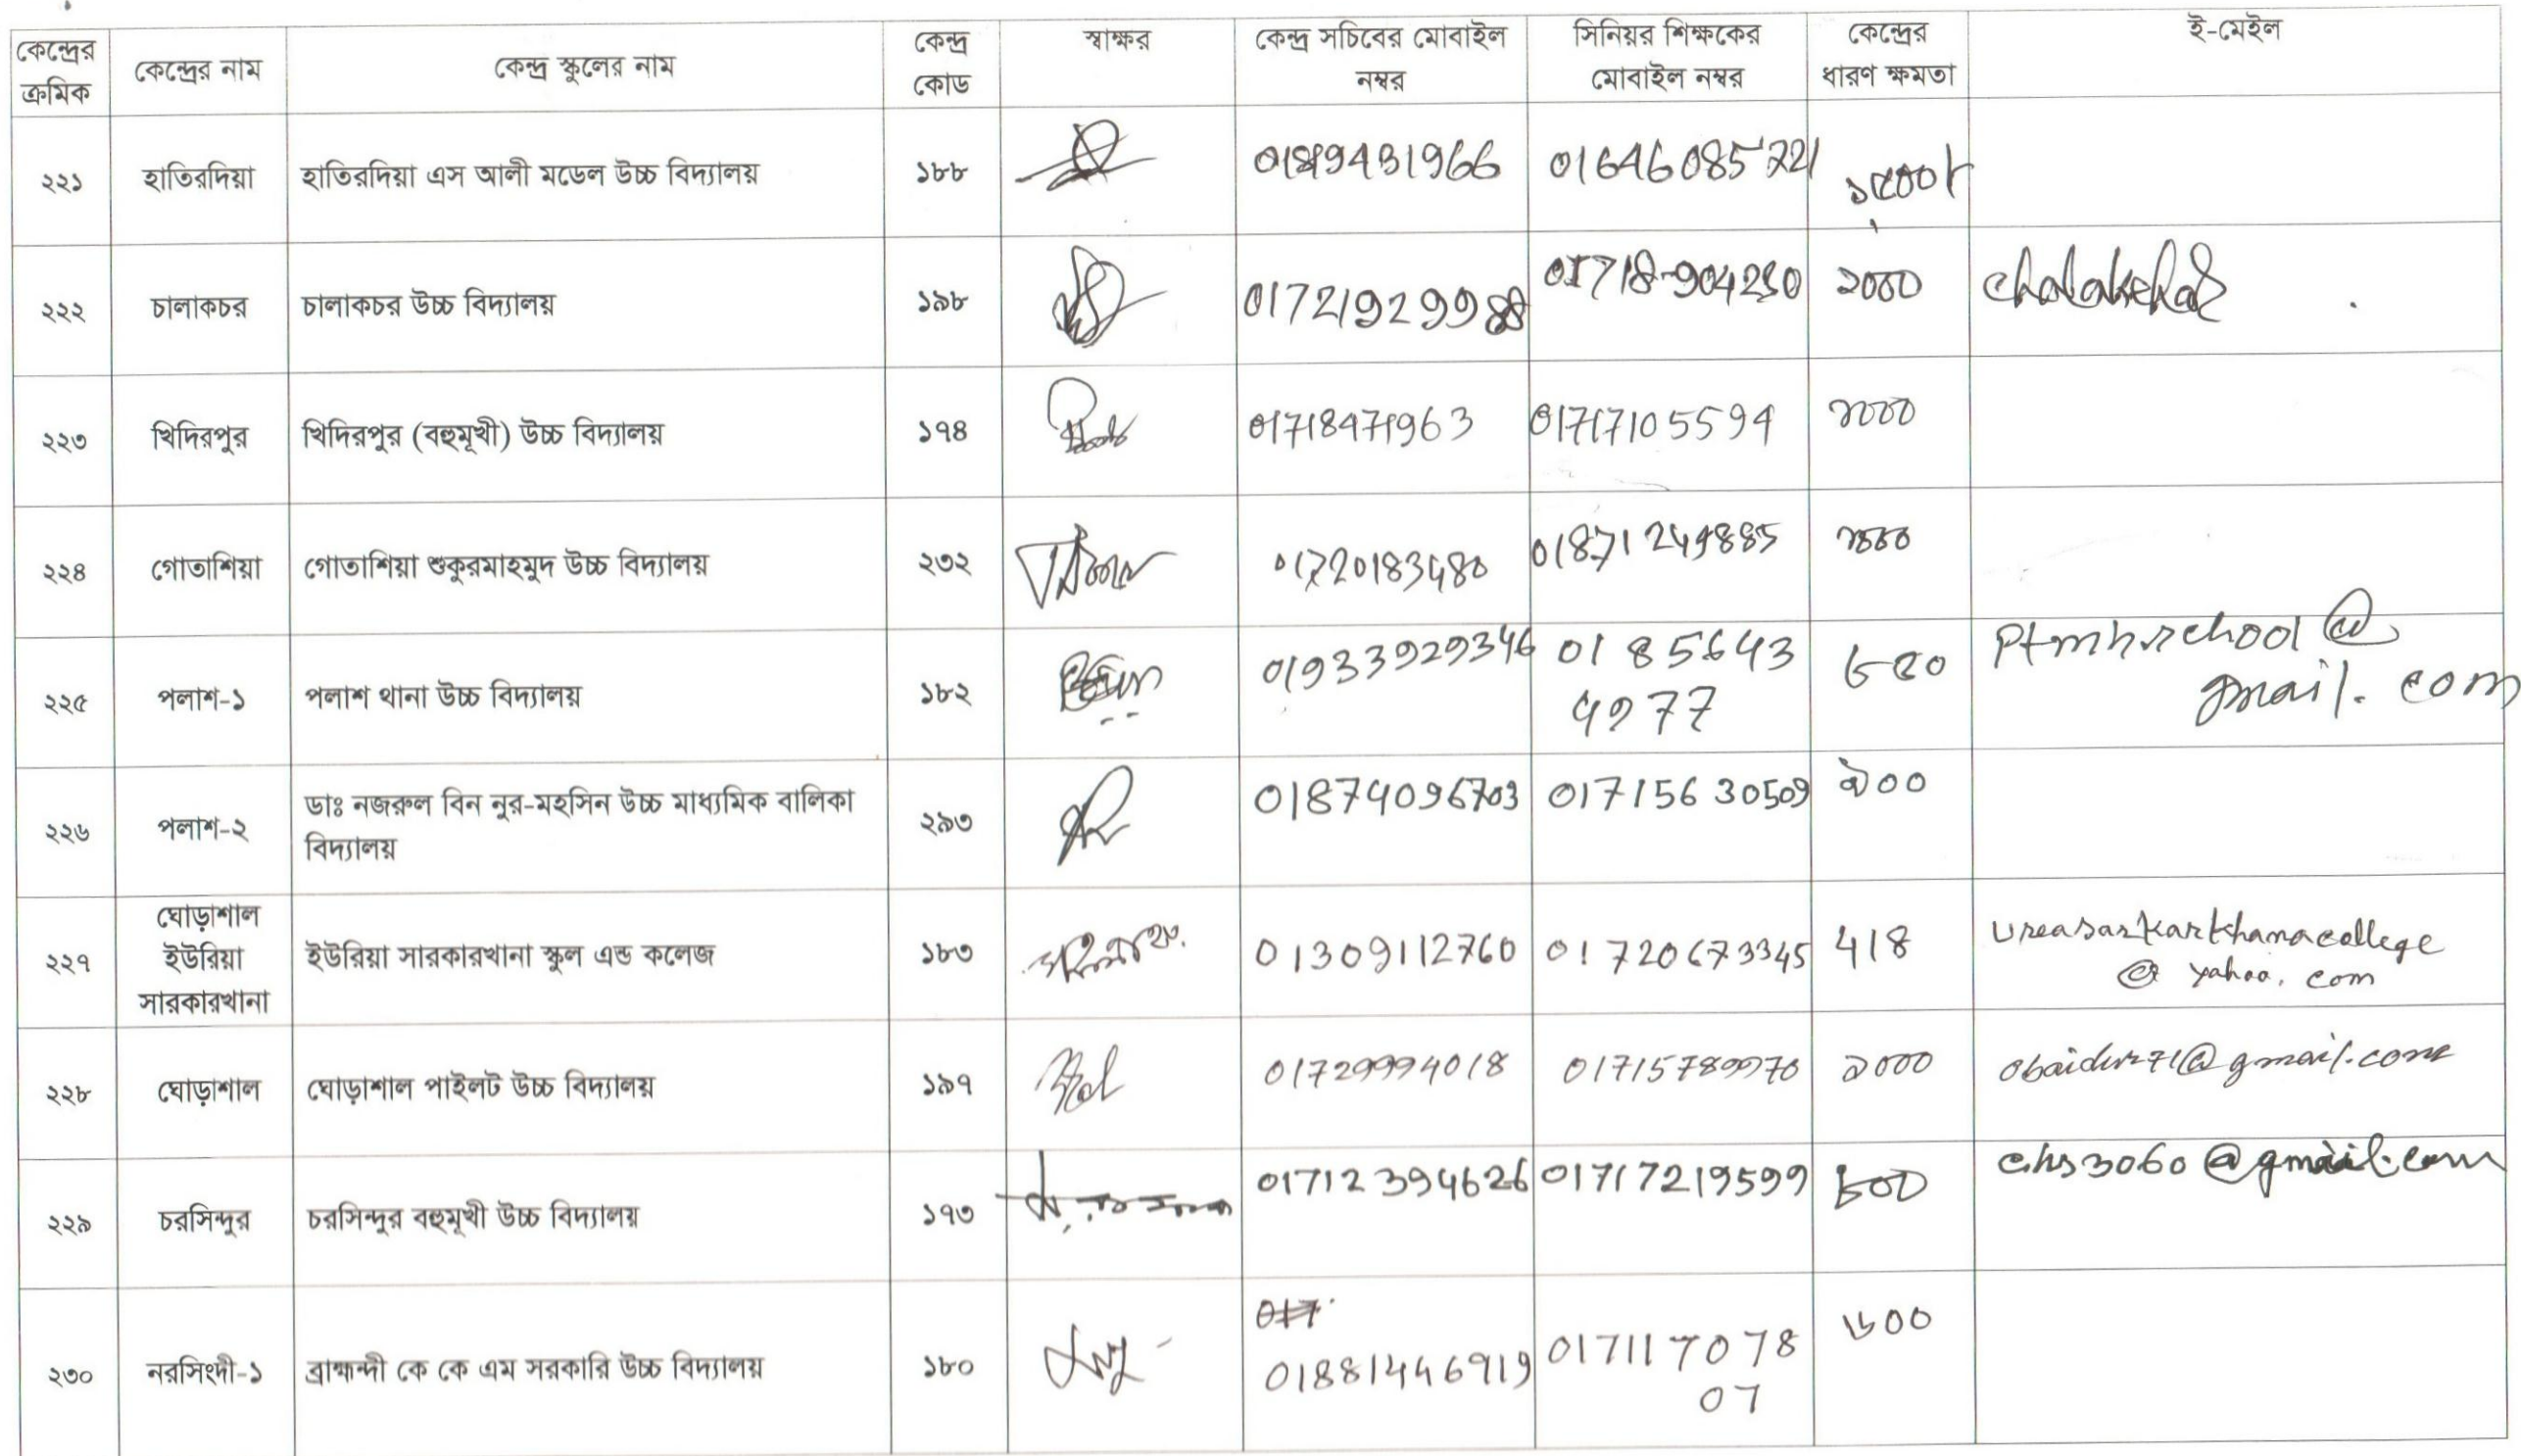 কেন্দ্রের ক্রমিক কেন্দ্রের নাম কেন্দ্র স্কুলের নাম কেন্দ্র কোড স্বাক্ষর কেন্দ্র সচিবের মোবাইল নম্বর সিনিয়র শিক্ষকের মোবাইল নম্বর কেন্দ্রের ধারণ ক্ষমতা ই-মেইল
২২১ হাতিরদিয়া হাতিরদিয়া এস আলী মডেল উচ্চ বিদ্যালয় ১৮৮ 01646085721
২২২ চালাকচর চালাকচর উচ্চ বিদ্যালয় ১৯৮ 01718-904230 ২০০০
২২৩ খিদিরপুর খিদিরপুর (বহুমূখী) উচ্চ বিদ্যালয় ১৭৪ 01717105594 ১০০০
২২৪ গোতাশিয়া গোতাশিয়া শুকুরমাহমুদ উচ্চ বিদ্যালয় ২৩২ 01720183480 01871249885
২২৫ পলাশ-১ পলাশ থানা উচ্চ বিদ্যালয় ১৮২ 01933929346 01 85643
4977
gmail.com
২২৬ পলাশ-২ ডাঃ নজরুল বিন নুর-মহসিন উচ্চ মাধ্যমিক বালিকা
বিদ্যালয় ২৯৩ 01874096703 01715630509
২২৭ ঘোড়াশাল
ইউরিয়া
সারকারখানা ইউরিয়া সারকারখানা স্কুল এন্ড কলেজ ১৮৩ 01309112760 01720673345 418 ureasarkarkhanacollege
@ yahoo.com
২২৮ ঘোড়াশাল ঘোড়াশাল পাইলট উচ্চ বিদ্যালয় ১৯৭ 01729994018 01715789970 ১০০০ obaidur71@gmail.com
২২৯ চরসিন্দুর চরসিন্দুর বহুমূখী উচ্চ বিদ্যালয় ১৭৩ 01712394626 01717219599 ৮০০ chs3060@gmail.com
২৩০ নরসিংদী-১ ব্রাহ্মন্দী কে কে এম সরকারি উচ্চ বিদ্যালয় ১৮০ 01881446919 017117078
07